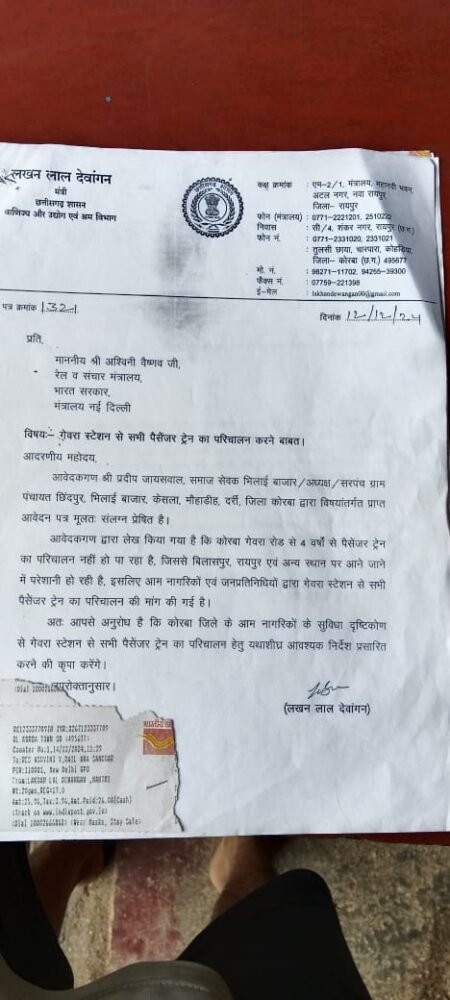 लखन लाल देवांगन
मंत्री
छत्तीसगढ़ शासन
वाणिज्य और उद्योग एवं श्रम विभाग
कक्ष क्रमांक : एम-2/1, मंत्रालय, महानदी भवन,
अटल नगर, नवा रायपुर
जिला- रायपुर
फोन (मंत्रालय) : 0771-2221201,
निवास : सी/4, शंकर नगर, रायपुर (छ.ग.)
फोन नं. : 0771-2331020, 2331021
: तुलसी छाया, चारपारा,
जिला- कोरबा (छ.ग.) 495677
मो. नं. : 98271-11702, 94255-39300
फैक्स नं. : 07759-221398
ई-मेल :
पत्र क्रमांक 1321
दिनांक 12/12/24
प्रति,
माननीय श्री अश्विनी वैष्णव जी,
रेल व संचार मंत्रालय,
भारत सरकार,
मंत्रालय नई दिल्ली
विषयः– गेवरा स्टेशन से सभी पैसेंजर ट्रेन का परिचालन करने बाबत।
आदरणीय महोदय,
आवेदकगण श्री प्रदीप जायसवाल, समाज सेवक भिलाई बाजार/अध्यक्ष/सरपंच ग्राम
पंचायत छिंदपुर, भिलाई बाजार, केसला, मौहाडीह, दर्री, जिला कोरबा द्वारा विषयांतर्गत प्राप्त
आवेदन पत्र मूलतः संलग्न प्रेषित है।
आवेदकगण द्वारा लेख किया गया है कि कोरबा गेवरा रोड से 4 वर्षों से पैसेंजर ट्रेन
का परिचालन नहीं हो पा रहा है, जिससे बिलासपुर, रायपुर एवं अन्य स्थान पर आने जाने
में परेशानी हो रही है, इसलिए आम नागरिकों एवं जनप्रतिनिधियों द्वारा गेवरा स्टेशन से सभी
पैसेंजर ट्रेन का परिचालन की मांग की गई है।
अतः आपसे अनुरोध है कि कोरबा जिले के आम नागरिकों के सुविधा दृष्टिकोण
से गेवरा स्टेशन से सभी पैसेंजर ट्रेन का परिचालन हेतु यथाशीघ्र आवश्यक निर्देश प्रसारित
करने की कृपा करेंगे।
उपरोक्तानुसार।
(लखन लाल देवांगन)
SL KORBA TOWN SO (495677)
Counter No:1,14/12/2024,12:29
PIN:110001, New Delhi GPO
Wt:20gms,
(Track on www.indiapost.gov.in)
(Wear Masks, Stay Safe)